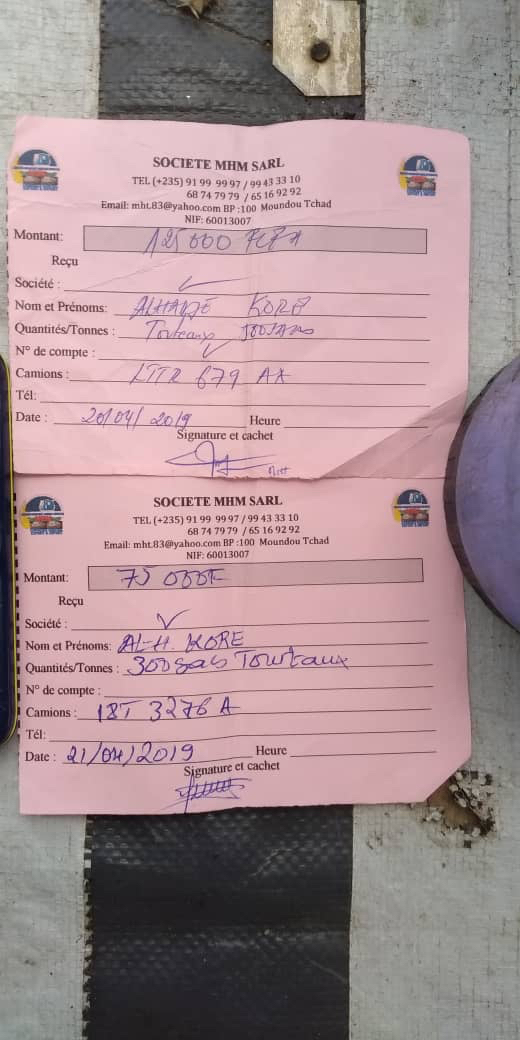 SOCIETE MHM SARL
TEL (+235) 91 99 99 97 / 99 43 33 10
68 74 79 79 / 65 16 92 92
Email: mht.83@yahoo.com BP :100 Moundou Tchad
NIF: 60013007
Montant: 125 000 FCFA
Reçu
Société :
Nom et Prénoms: KORE
Quantités/Tonnes : Tourteaux
N° de compte :
Camions : 679 AX
Tél:
Date : 20/04/2019 Heure
Signature et cachet
SOCIETE MHM SARL
TEL (+235) 91 99 99 97 / 99 43 33 10
68 74 79 79 / 65 16 92 92
Email: mht.83@yahoo.com BP :100 Moundou Tchad
NIF: 60013007
Montant: 75 000F
Reçu
Société :
Nom et Prénoms: AL-H. KORE
Quantités/Tonnes : 300 sacs Tourtaux
N° de compte :
Camions : 18T 3276 A
Tél:
Date : 21/04/2019 Heure
Signature et cachet